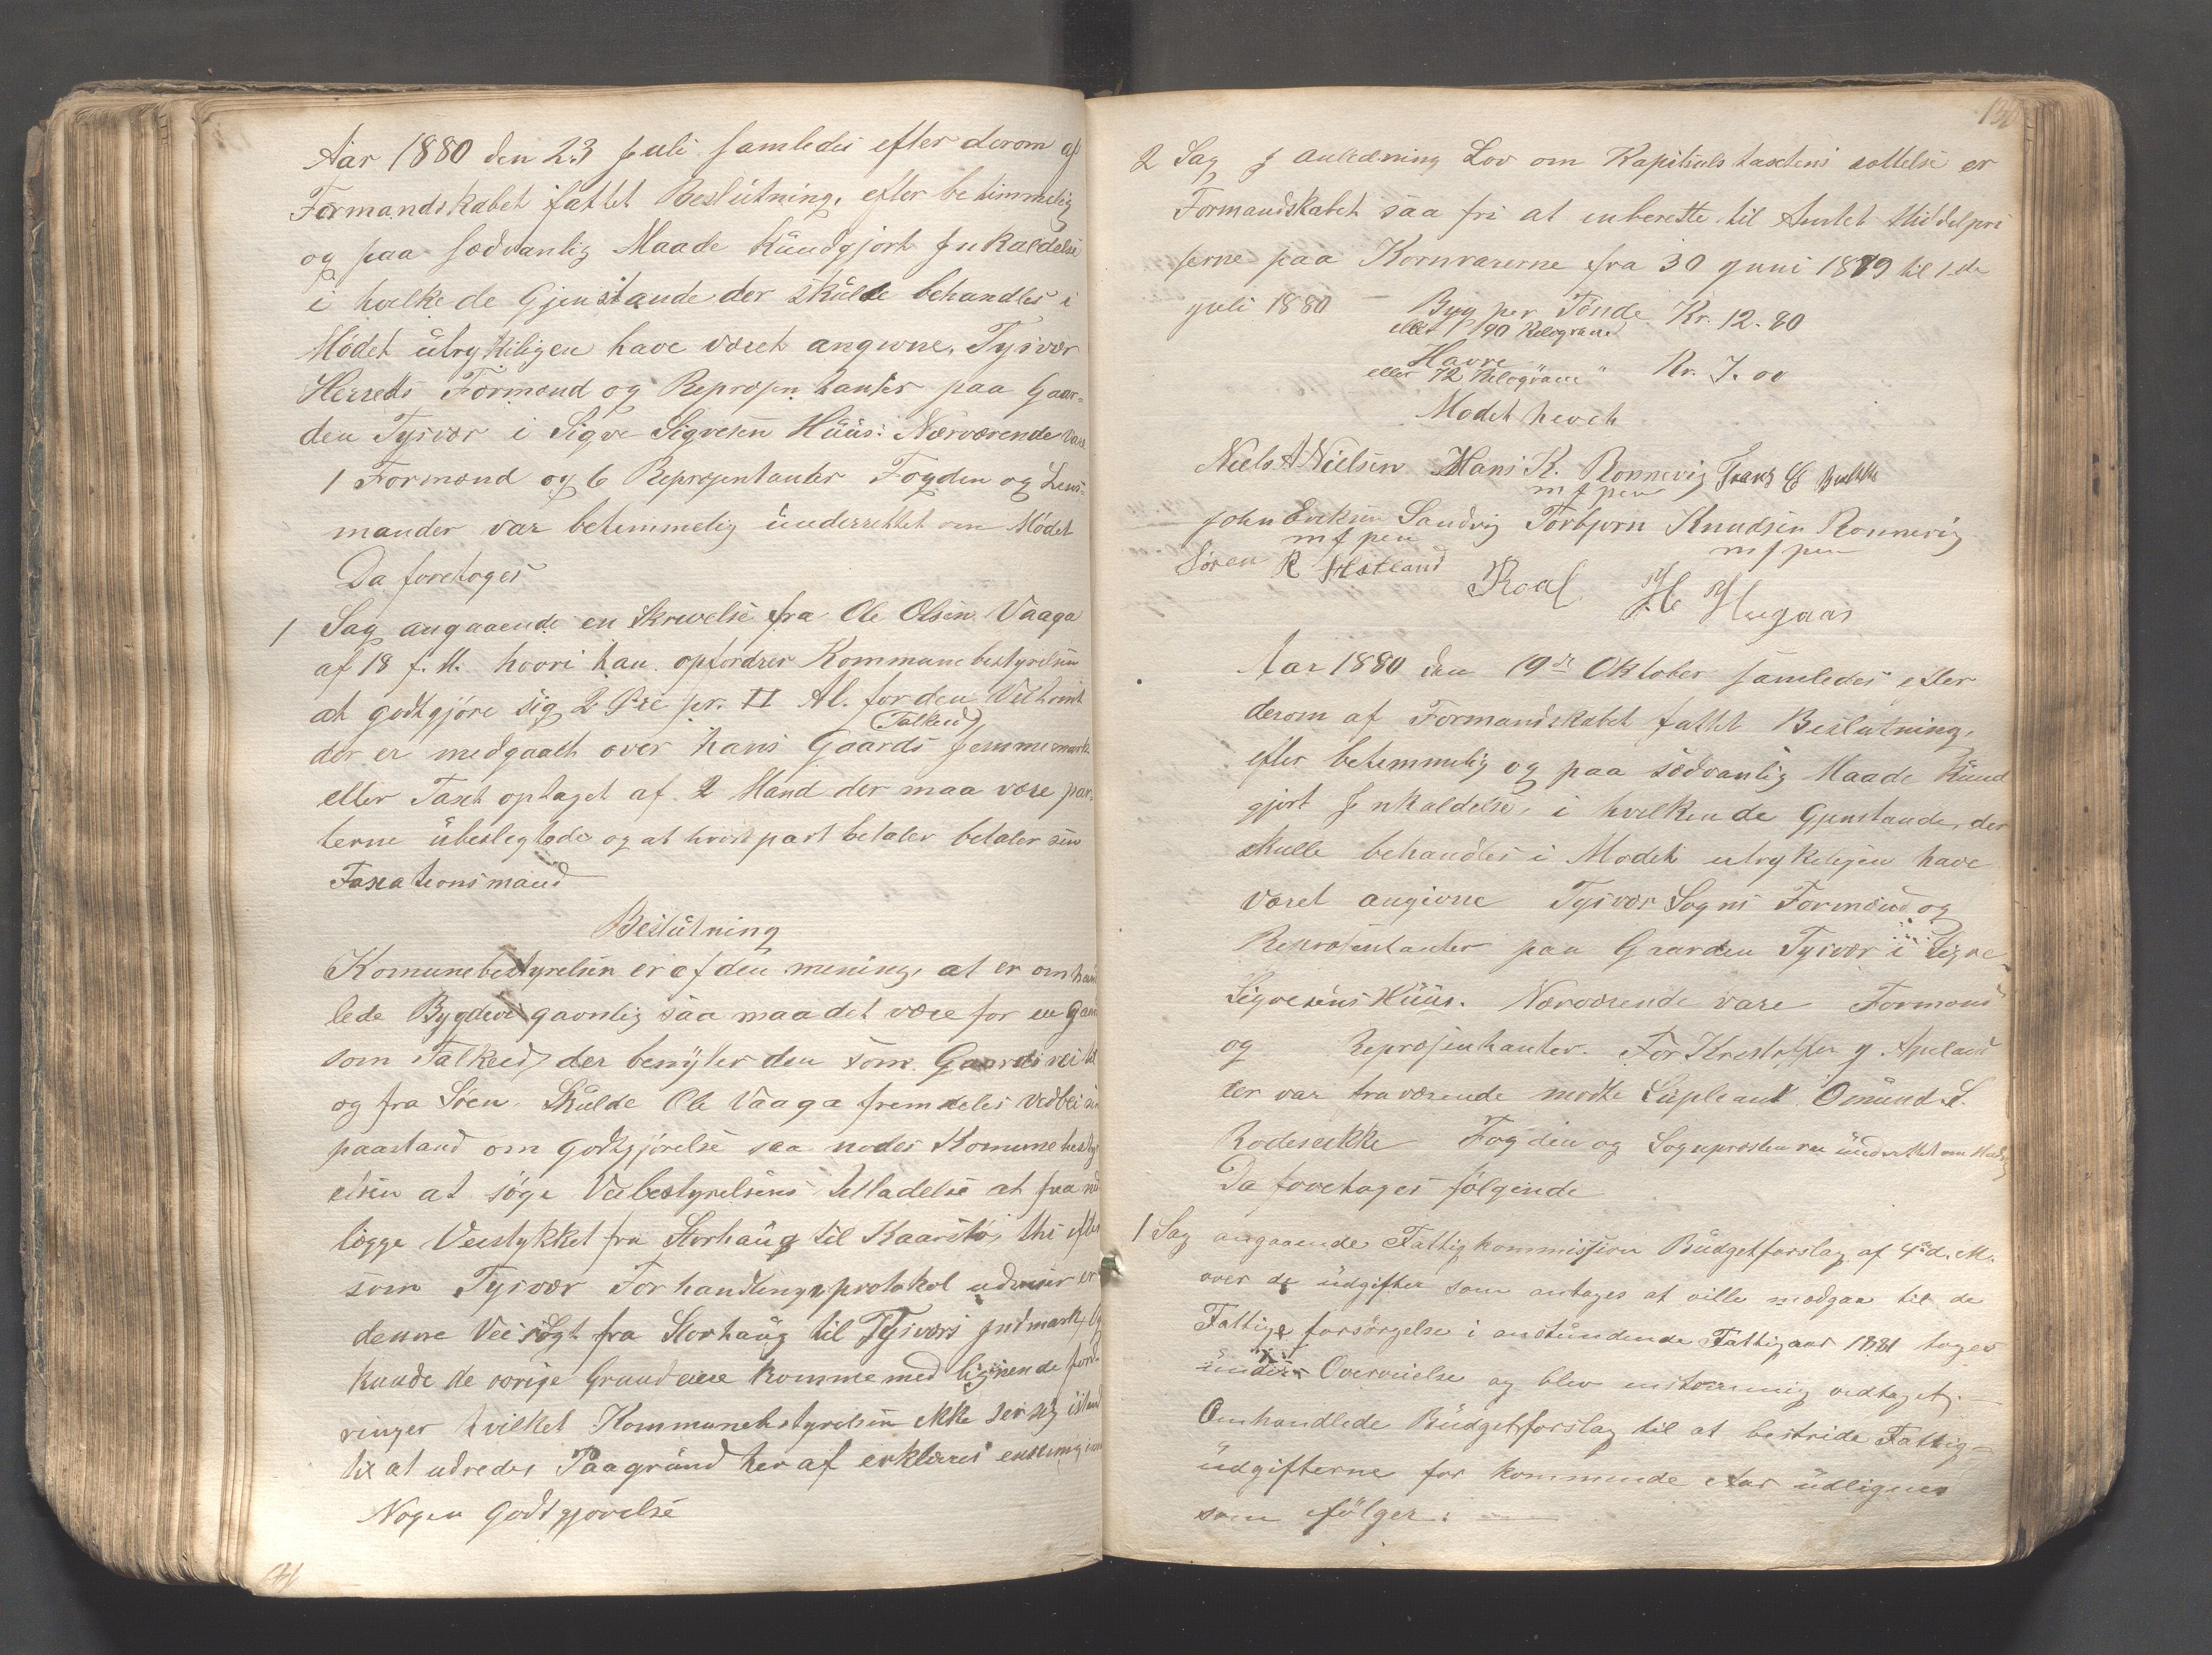 Aar 1880 den 23 Juli samledes efter derom af
Formandskabet fattet Beslutning, efter betimmelig
og paa sædvanlig Maade kundgjort Inkaldelse
i hvilke de Gjenstande der skulde behandles i
Mödet utrykkeligen have været angivne, Tysvær
Herreds Formænd og Repræsentanter paa Gaar-
den Tysvær i Sigve Sigvesen Huus: Nærværende vare
1 Formænd og 6 Representanter Fogden og Lens-
mander var betimmelig underrettet om Mödet
Da foretoges
1 Sag angaaende en Skrivelse fra Ole Olsen Vaaga
af 18 f. M. hvori han opfordrer Kommunebestyrelsen
at godtgjöre sig 2 Öre pr. □ Al. for den Veitomt
(Falkeid)
der er medgaaet over hans Gaards Hemmemark
eller Taxt optaget af 2 Mand der maa være par-
terne ubeslegtede og at hvert part betaler betaler sin
Taxationsmand
Beslutning
Komunebestyrelsen er af den mening, at er omhand
lede Bygdevei gavnlig saa maa det være for en Gaard
som Falkeid der benyter den som Gaardsvei til
og fra Söen. Skulde Ole Vaaga fremdeles vedblei sin
paastand om godtgjörelse saa nodes Komunebesty
elsen at söge Veibestyrelsens tilladelse at faa ned
lægge Veistykket fra Storhaug til Kaarstö, thi efter
som Tysvær Forhandlingsprotokol udviser er
denne Vei sögt fra Storhaug til Tysværs Indmark, og
kunde de övrige Grundeiere komme med lignende ford
ringer hvilket Kommunebestyrelsen ikke ser sig istand
til at udredes Paagrund heraf erklæres enstemig ind
Nogen Godtgjörelse
2 Sag I anledning Lov om Kapitels taxtens sættelse er
Formandskabet saa fri at inberette til Amtet Middelpri
serne paa Kornvarerne fra 30 Juni 1879 til 1de
Juli 1880 — Byg per Tönde Kr. 12.80
eller 90 Kilogram
Havre
eller 72 Kilogram " Kr. 7.00
Modet hevet
Niels A Nielsen Hans K. Ronnevig
m f pen
John Eriksen Sandvig Torbjorn Knudsen Ronnevig
m f pen m f pen
Sören R Roal
Aar 1880 den 19de Oktober samledes efter
derom af Formandskabet fattet Beslutning,
efter betimmelig og paa sædvanlig Maade Kund
gjort Inkaldelse, i hvilken de Gjenstande, der
skulle behandles i Modet utrykeligen have
været angivne Tysvær Sogns Formænd og
Repræsentanter paa Gaarden Tysvær i Sigve
Sigvesens Huus. Nærværende vare Formænd
og Repræsentanter. For Kristoffer J. Apeland
der var fraværende modte Supleant Omund S.
Fogden og Sognepræsten var underrettet om Modet
Da foretoges fölgende
1 Sag angaaende Fattigkommission Büdgetforslag af 4de d. M.
over de üdgifter som antages at ville medgaa til de
Fattiges forsörgelse i anstundende Fattigaar 1881 toges
under Overveielse og blev enstemmig vedtaget. —
Omhandlede Büdgetforslag til at bestride Fattig-
üdgifterne for kommende Aar üdlignes
som fölger: —